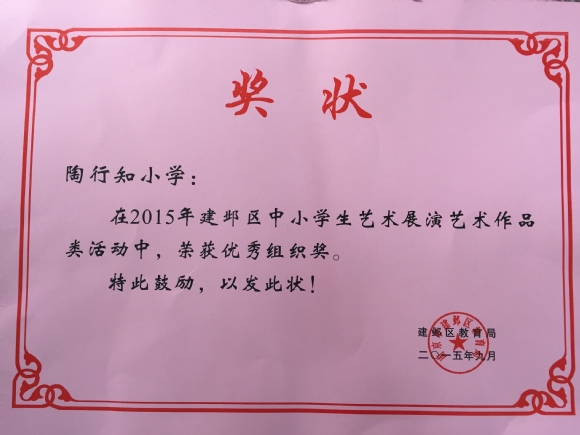 奖状
陶行知小学：
在2015年建邺区中小学生艺术展演艺术作品
类活动中，荣获优秀组织奖。
特此鼓励，以发此状！
建邺区教育局
二〇一五年九月